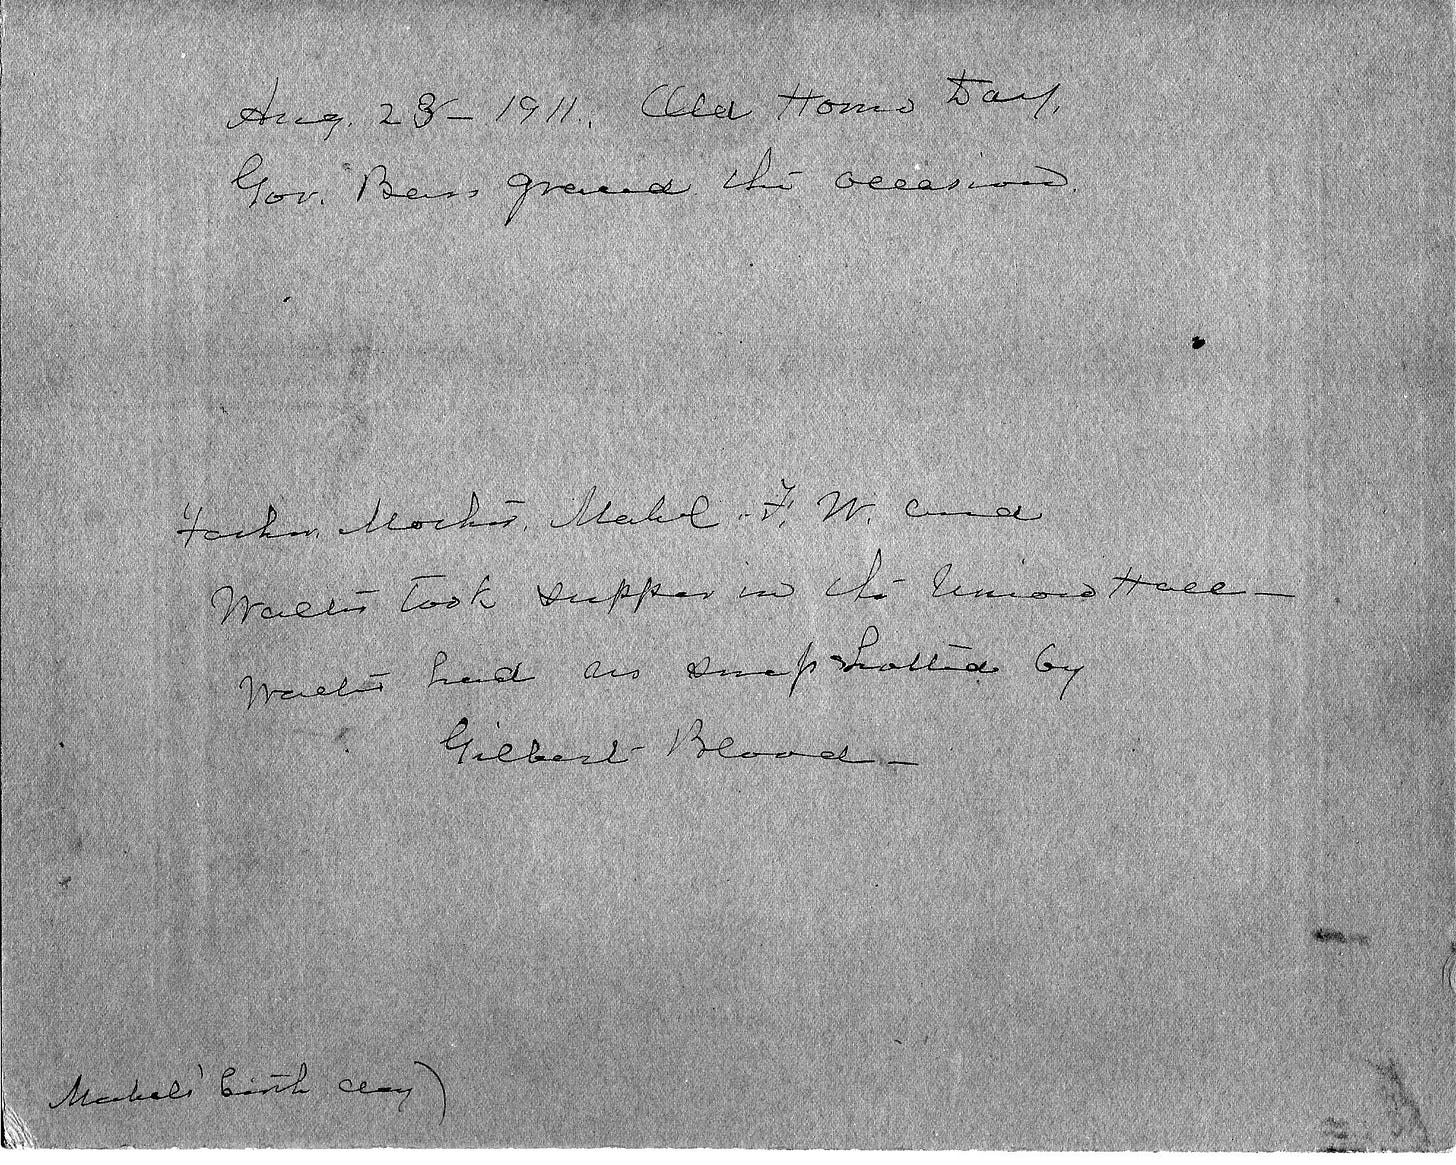 Aug. 23 - 1911. Old Home Day.
Gov. Bass graced the occasion.
Father, Mother, Mabel, F. W. and
Walter took supper in the Union Hall -
Walter had us snap shotted by
Gilbert Blood -
Mabel's birth day)